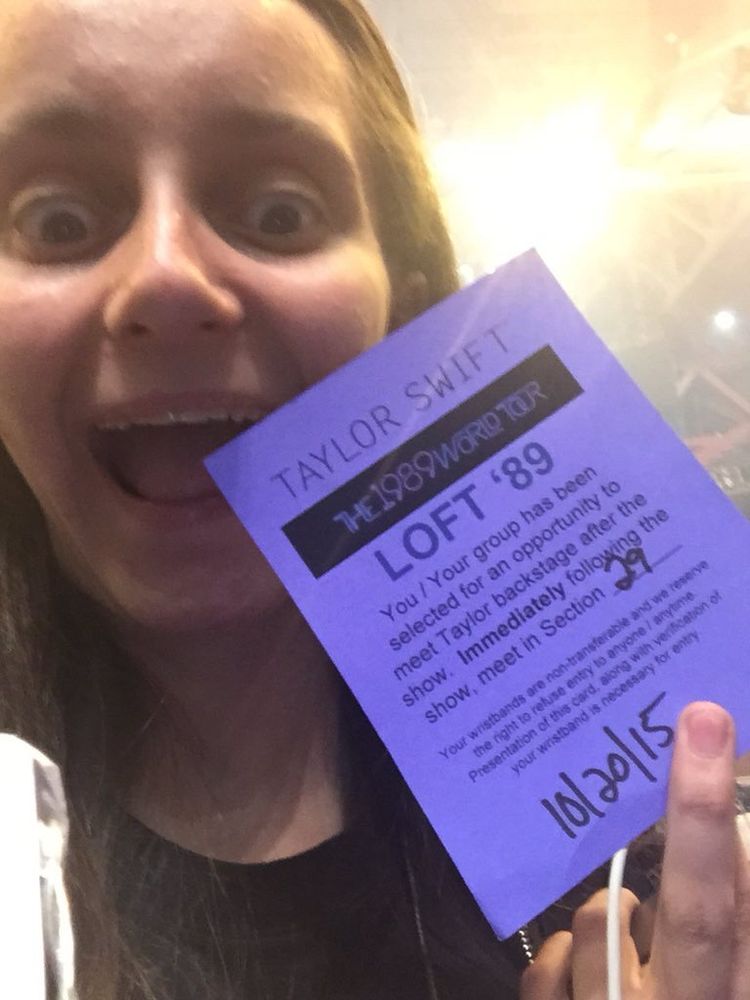 TAYLOR SWIFT
THE 1989 WORLD TOUR
LOFT '89
You / Your group has been
selected for an opportunity to
meet Taylor backstage after the
show. Immediately following the
show, meet in Section 29
Your wristbands are non-transferable and we reserve
the right to refuse entry to anyone / anytime.
Presentation of this card, along with verification of
your wristband is necessary for entry
10/20/15